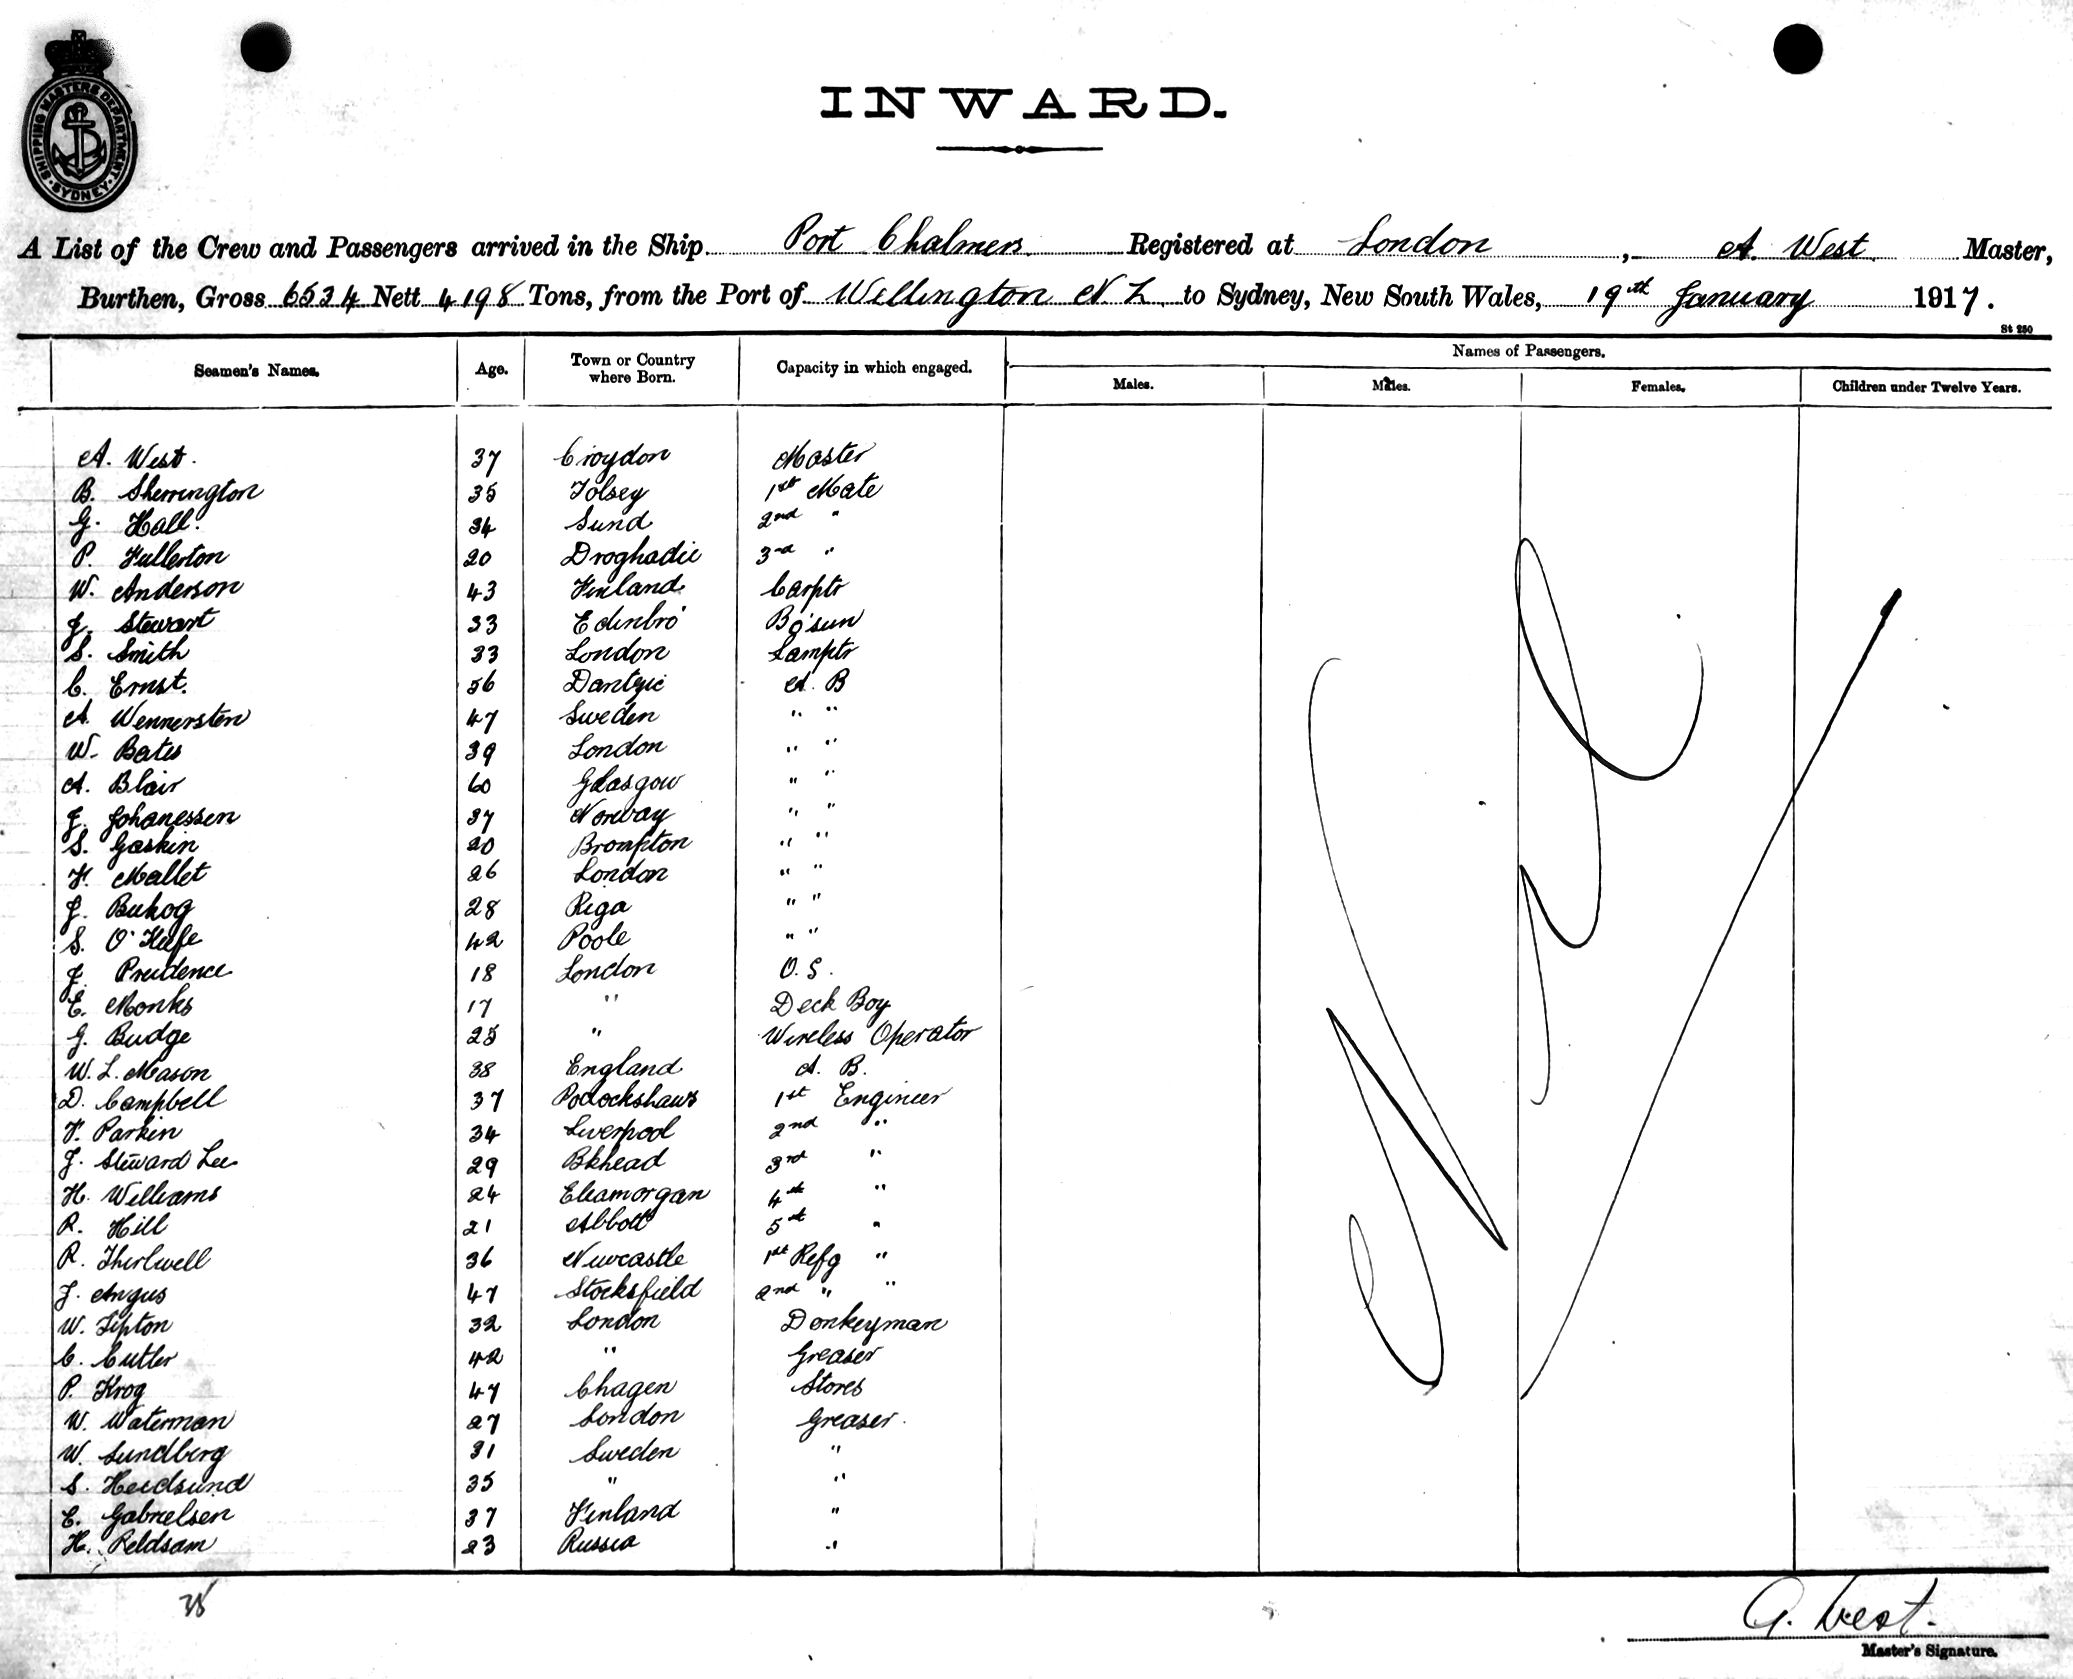 SHIPPING MASTERS DEPARTMENT
SYDNEY
INWARD.
A List of the Crew and Passengers arrived in the Ship Port Chalmers Registered at London, A. West Master,
Burthen, Gross 6534 Nett 4198 Tons, from the Port of Wellington N Z to Sydney, New South Wales, 19th January 1917.
St 250
Seamen's Names. Age. Town or Country where Born. Capacity in which engaged. Names of Passengers.
Males. Males. Females. Children under Twelve Years.
A. West. 37 Croydon Master
B. Sherrington 35 Tolsey 1st Mate
G. Hall. 34 Sund 2nd "
P. Fullerton 20 Droghadie 3rd "
W. Anderson 43 Finland Carptr
J. Stewart 33 Edinbro' Bo'sun
S. Smith 33 London Lamptr
C. Ernst. 56 Dantzic A. B
A. Wennersten 47 Sweden " "
W. Bates 39 London " "
A. Blair 60 Glasgow " "
J. Johanessen 37 Norway " "
S. Gaskin 20 Brompton " "
F. Mallet 26 London " "
J. Bukog 28 Riga " "
S. O'Keefe 42 Poole " "
J. Prudence 18 London O. S.
E. Monks 17 " Deck Boy
G. Budge 25 " Wireless Operator
W. L. Mason 38 England A. B.
D. Campbell 37 Polockshaws 1st Engineer
F. Parkin 34 Liverpool 2nd "
J. Steward Lee 29 Bkhead 3rd "
H. Williams 24 Glamorgan 4th "
R. Hill 21 Abbott 5th "
R. Thirlwell 36 Newcastle 1st Refg "
J. Angus 47 Stocksfield 2nd " "
W. Tipton 32 London Donkeyman
C. Cutler 42 " Greaser
P. Krog 47 Chagen Stores
W. Waterman 27 London Greaser.
W. Sundberg 31 Sweden "
S. Heidsund 35 " "
E. Gabrielsen 37 Finland "
H. Reldsam 23 Russia "
Nil
35
A. West.
Master's Signature.